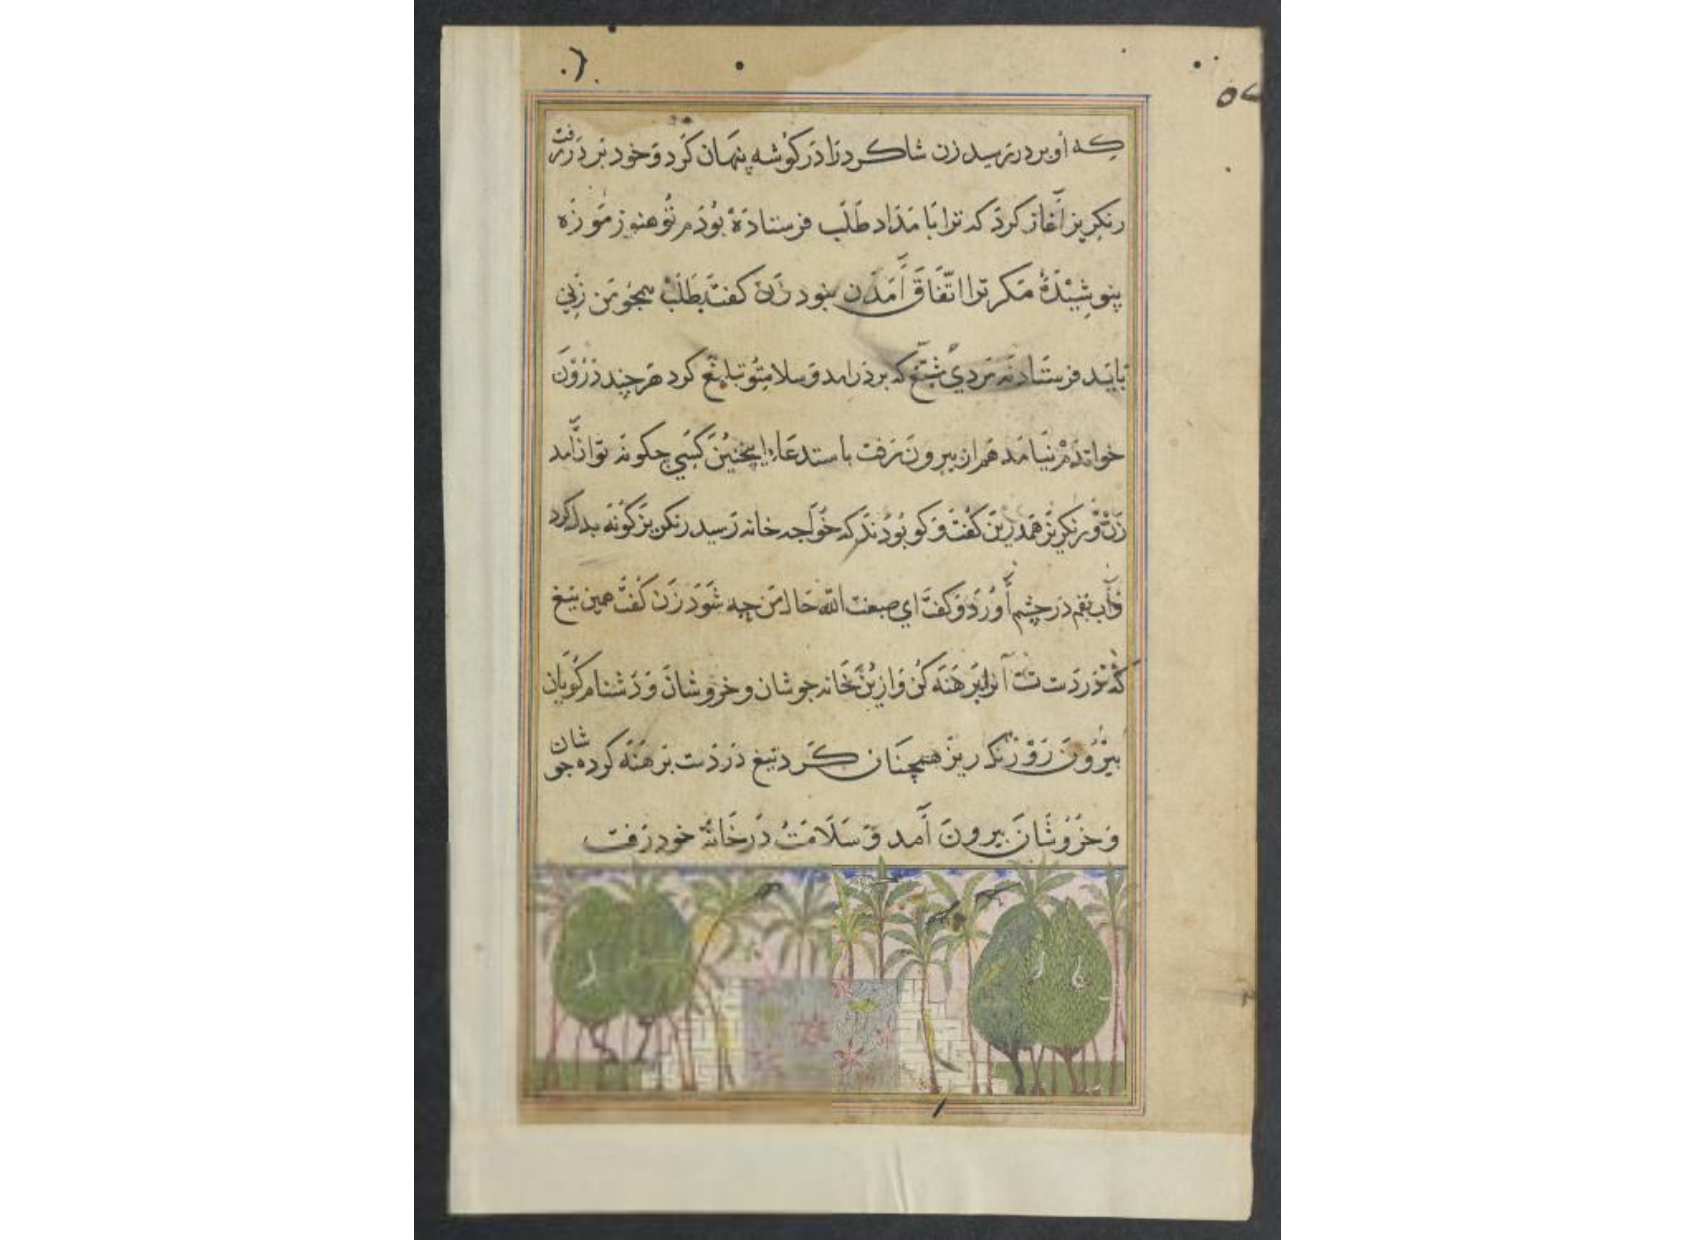 ۵۷
که او بر در رسید زن شاکرد را در کوشه پنهان کرد و خود بر در رفت
رنکریز آغاز کرد که ترا بامداد طلب فرستاده بودم تو هنوز موزه
پنوشیدۀ مکر ترا اتفاق آمدن نبود زن کفت بطلب همجو من زنی
باید فرستاد نه مردی که بر در امد و سلامتو تبلیغ کرد هر چند درون
خواندم نیامد هم از بیرون رفت باستدعاء اینچنین کسی چکونه توان آمد
زن و رنکریز همدرین کفت و کو بودند که خواجه خانه رسید رنکریز کونه بدل کرد
و آب بقم در چشم آورد و کفت ای صبغت الله حال من چه شود زن کفت همین تیغ
که در دست تست آنرا برهنه کن و ازین خانه جوشان و خروشان و دشنام کویان
بیرون رو رنکریز همچنان کرد تیغ در دست برهنه کرده جوشان
و خروشان بیرون آمد و سلامت در خانۀ خود رفت